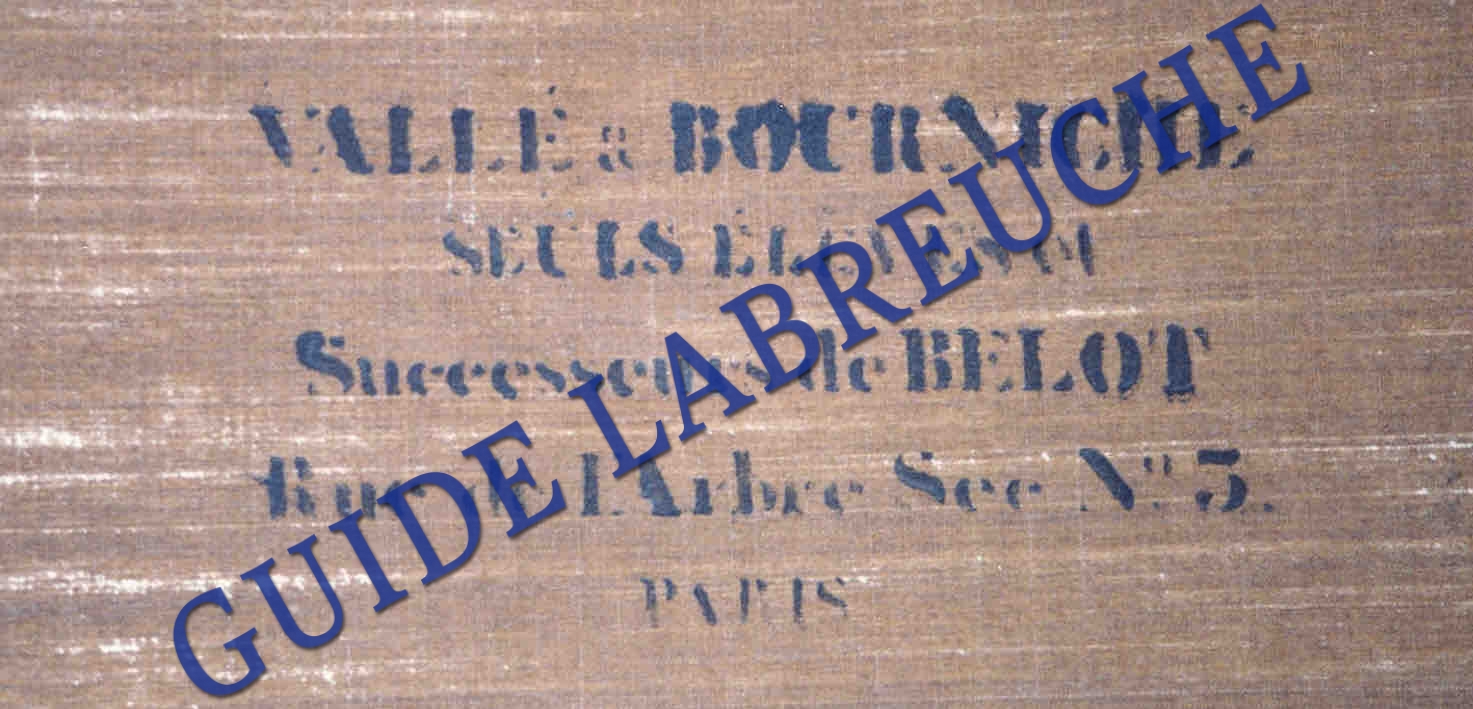 VALLÉ & BOURNICHE
SEULS ÉLÈVES &
Successeurs de BELOT
Rue de l'Arbre Sec Nº 3.
PARIS
GUIDE LABREUCHE